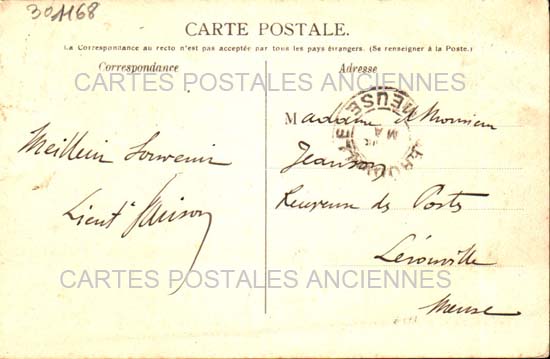 301168
CARTE POSTALE.
La Correspondance au recto n'est pas acceptée par tous les pays étrangers. (Se renseigner à la Poste.)
Correspondance
Adresse
CARTES POSTALES ANCIENNES
MEUSE
Meilleur Souvenir
Lieut
Madame et Monsieur
Jeanson
Receveuse des Postes
Lérouville
Meuse
CARTES POSTALES ANCIENNES